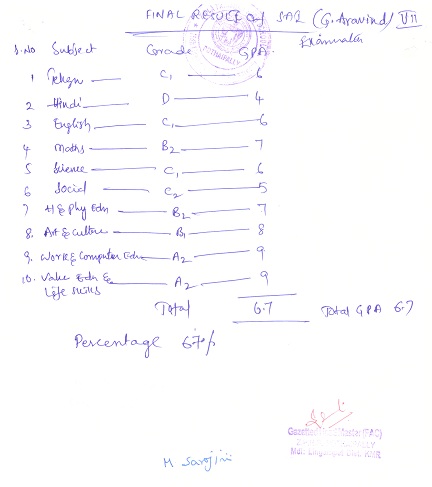 FINAL RESULT OF SA2 (G. Aravind) VII
Examination
S.No Subject Grade GPA
1 Telugu — C1 — 6
2 Hindi — D — 4
3 English — C1 — 6
4 Maths — B2 — 7
5 Science — C1 — 6
6 Social — C2 — 5
7 H & Phy Edn — B2 — 7
8. Art & Culture — B1 — 8
9. Work & Computer Edn — A2 — 9
10. Value Edn &
Life Skills — A2 — 9
Total 6.7 Total GPA 6.7
Percentage 67%
M Sarojini